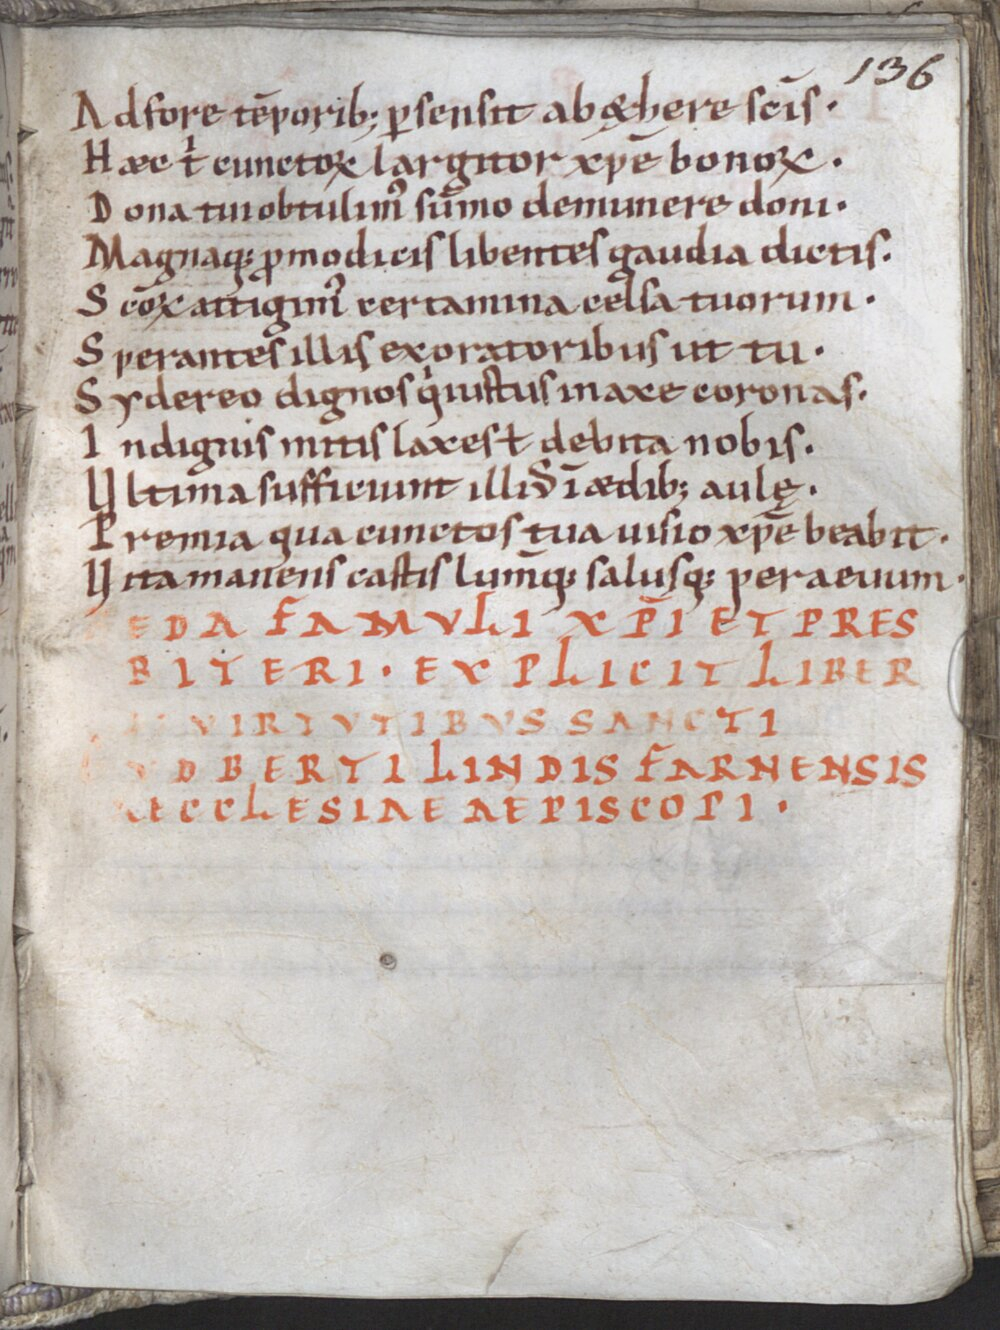 136
Adfore tēporib; ꝑsensit ab &here scīs·
Hæc t̄ cunctoꝝ largitor xp̄e bonoꝝ.
Dona tui obtulimꝰ sūmo de munere doni·
Magnaq; ꝓ modicis libentes gaudia dictis.
Scōꝝ attigimꝰ certamina celsa tuorum·
Sperantes illis exoratoribus ut tu·
Sydereo dignos qͥ iustus in axe coronas.
Indignis mitis laxes & debita nobis.
Ultima sufficiunt illic ī ædib; aulę.
Premia qua cunctos tua uisio xp̄e beabit.
Uita manens castis lum̄q; salusq; per aeuum.
EDA FAMULI XP̄I ET PRES
BITERI· EXPLICIT LIBER
VIRTVTIBVS SANCTI
VDBERTI LINDISFARNENSIS
AECCLESIAE AEPISCOPI·